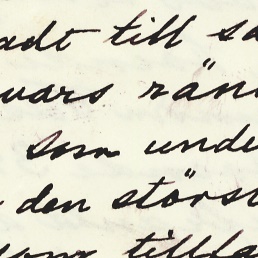 adt till sa
vars rän
som unde
den störst
som tillfa